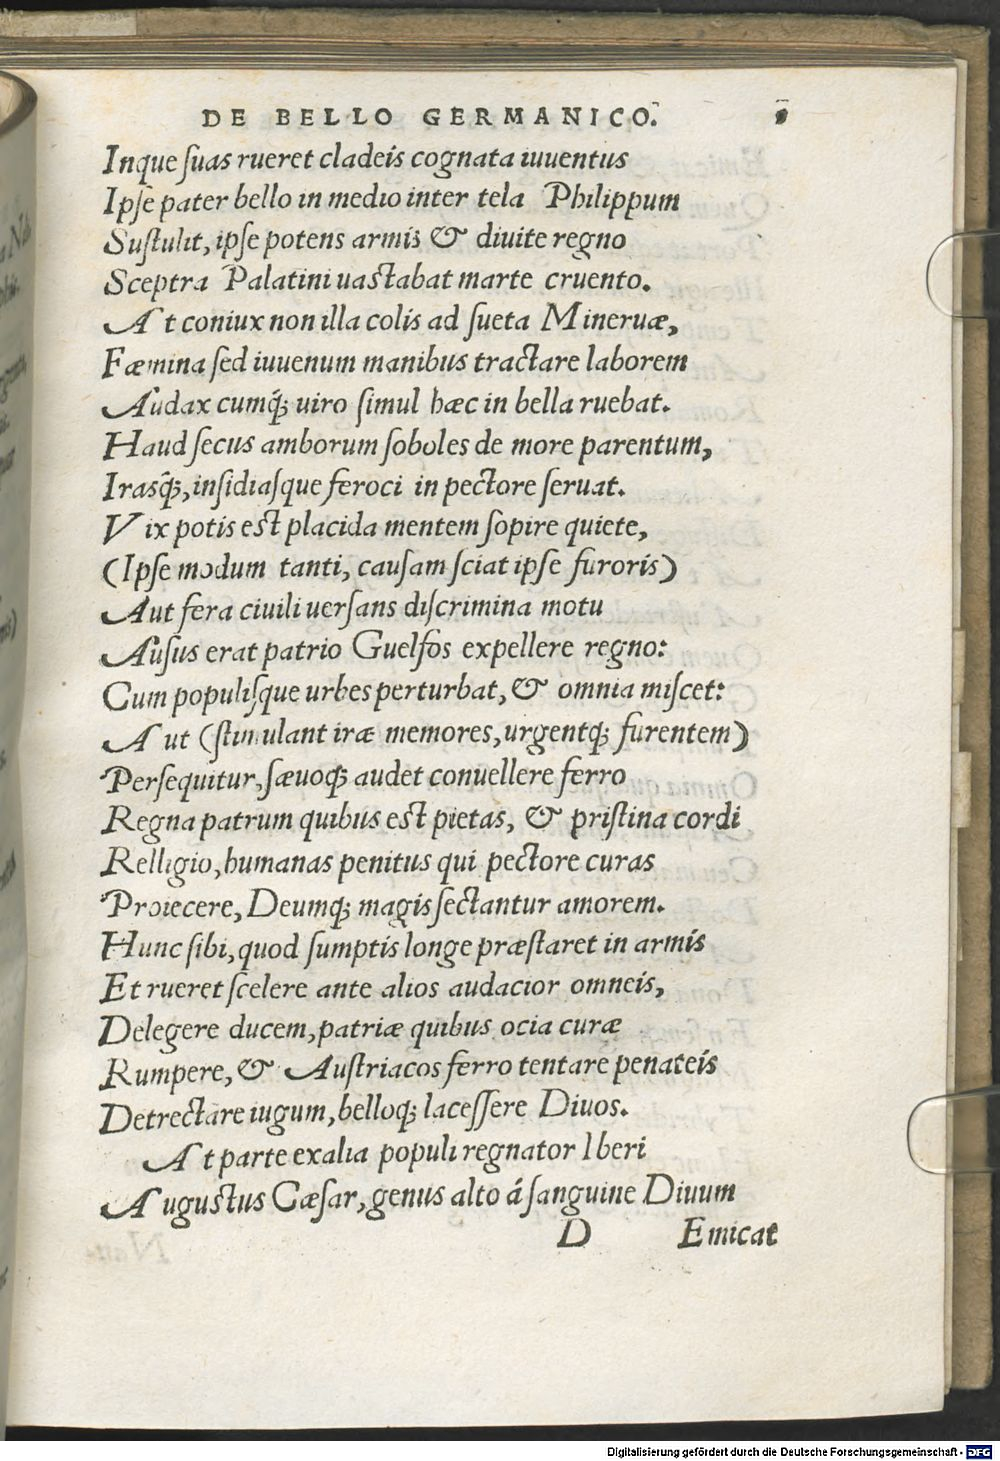 DE BELLO GERMANICO.
Inque ſuas rueret cladeis cognata iuuentus
Ipſe pater bello in medio inter tela Philippum
Suſtulit, ipſe potens armis & diuite regno
Sceptra Palatini uastabat marte cruento.
At coniux non illa colis ad ſueta Mineruæ,
Fæmina ſed iuuenum manibus tractare laborem
Audax cumq́; uiro ſimul hæc in bella ruebat.
Haud ſecus amborum ſoboles de more parentum,
Irasq́;, inſidiaſque feroci in pectore ſeruat.
Vix potis est placida mentem ſopire quiete,
(Ipſe modum tanti, cauſam ſciat ipſe furoris)
Aut fera ciuili uerſans diſcrimina motu
Auſus erat patrio Guelfos expellere regno:
Cum populiſque urbes perturbat, & omnia miſcet:
Aut (ſtimulant iræ memores, urgentq́; furentem)
Perſequitur, ſæuoq́; audet conuellere ferro
Regna patrum quibus est pietas, & priſtina cordi
Relligio, humanas penitus qui pectore curas
Proiecere, Deumq́; magis ſectantur amorem.
Hunc ſibi, quod ſumptis longe præſtaret in armis
Et rueret ſcelere ante alios audacior omneis,
Delegere ducem, patriæ quibus ocia curæ
Rumpere, & Auſtriacos ferro tentare penateis
Detrectare iugum, belloq́; laceſſere Diuos.
At parte exalia populi regnator Iberi
Augustus Cæſar, genus alto á ſanguine Diuum
D Emicat
Digitalisierung gefördert durch die Deutsche Forschungsgemeinschaft - DFG